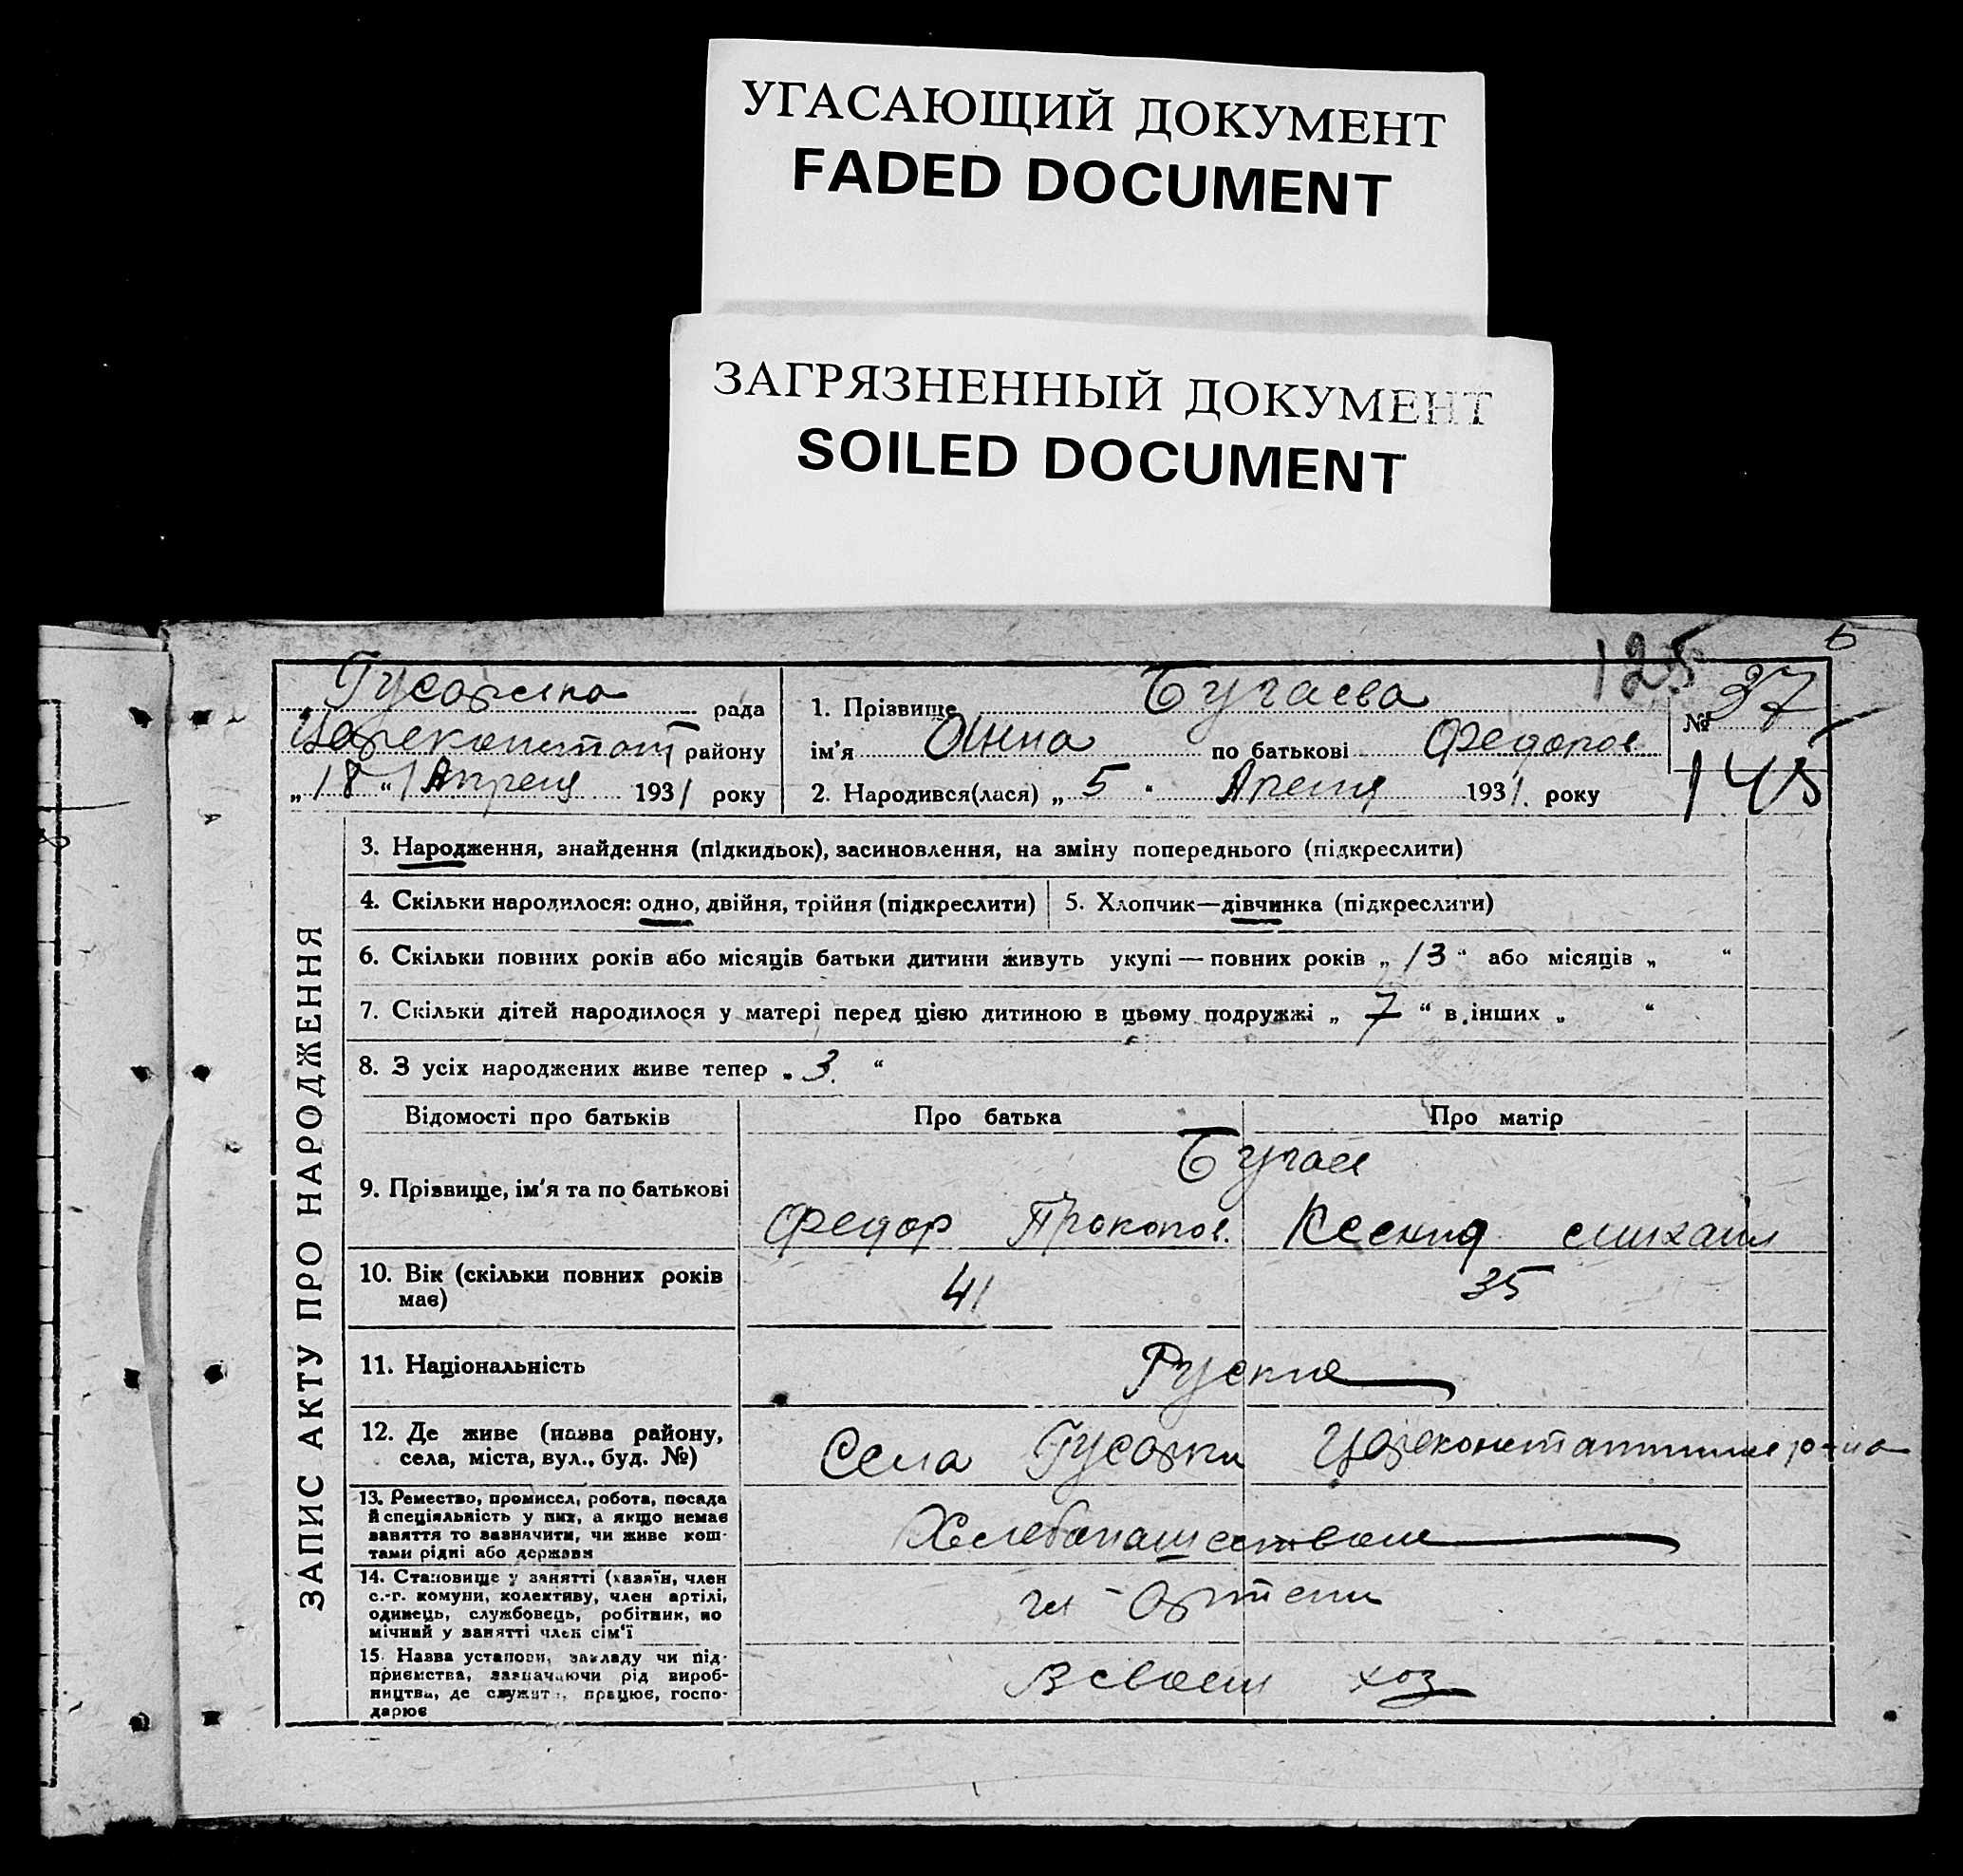 УГАСАЮЩИЙ ДОКУМЕНТ
FADED DOCUMENT
ЗАГРЯЗНЕННЫЙ ДОКУМЕНТ
SOILED DOCUMENT
125
рада
району
„18“ Апреля 1931 року
1. Прізвище Бугаева
ім'я Анна по батькові Федоров
2. Народився(лася) „5“ 1931. року
№ 37
145
ЗАПИС АКТУ ПРО НАРОДЖЕННЯ
3. Народження, знайдення (підкидьок), засиновлення, на зміну попереднього (підкреслити)
4. Скільки народилося: одно, двійня, трійня (підкреслити)
5. Хлопчик—дівчинка (підкреслити)
6. Скільки повних років або місяців батьки дитини живуть укупі — повних років „13“ або місяців „ “
7. Скільки дітей народилося у матері перед цією дитиною в цьому подружжі „7“ в інших „ “
8. З усіх народжених живе тепер „3.“
Відомості про батьків
Про батька
Про матір
9. Прізвище, ім'я та по батькові
Федор Прокопов.
10. Вік (скільки повних років
має)
41
35
11. Національність
12. Де живе (назва району,
села, міста, вул., буд. №)
Села Гусарки
13. Ремество, промисел, робота, посада
й спеціяльність у них, а якщо немає
заняття то зазначити, чи живе кош-
тами рідні або держави
14. Становище у занятті (хазяїн, член
с.-г. комуни, колективу, член артілі,
одинець, службовець, робітник, по
мічний у занятті член сім'ї
чл Артели
15. Назва установи, закладу чи під-
приємства, зазначаючи рід вироб-
ництва, де служить, працює, госпо-
дарює
В своем хоз